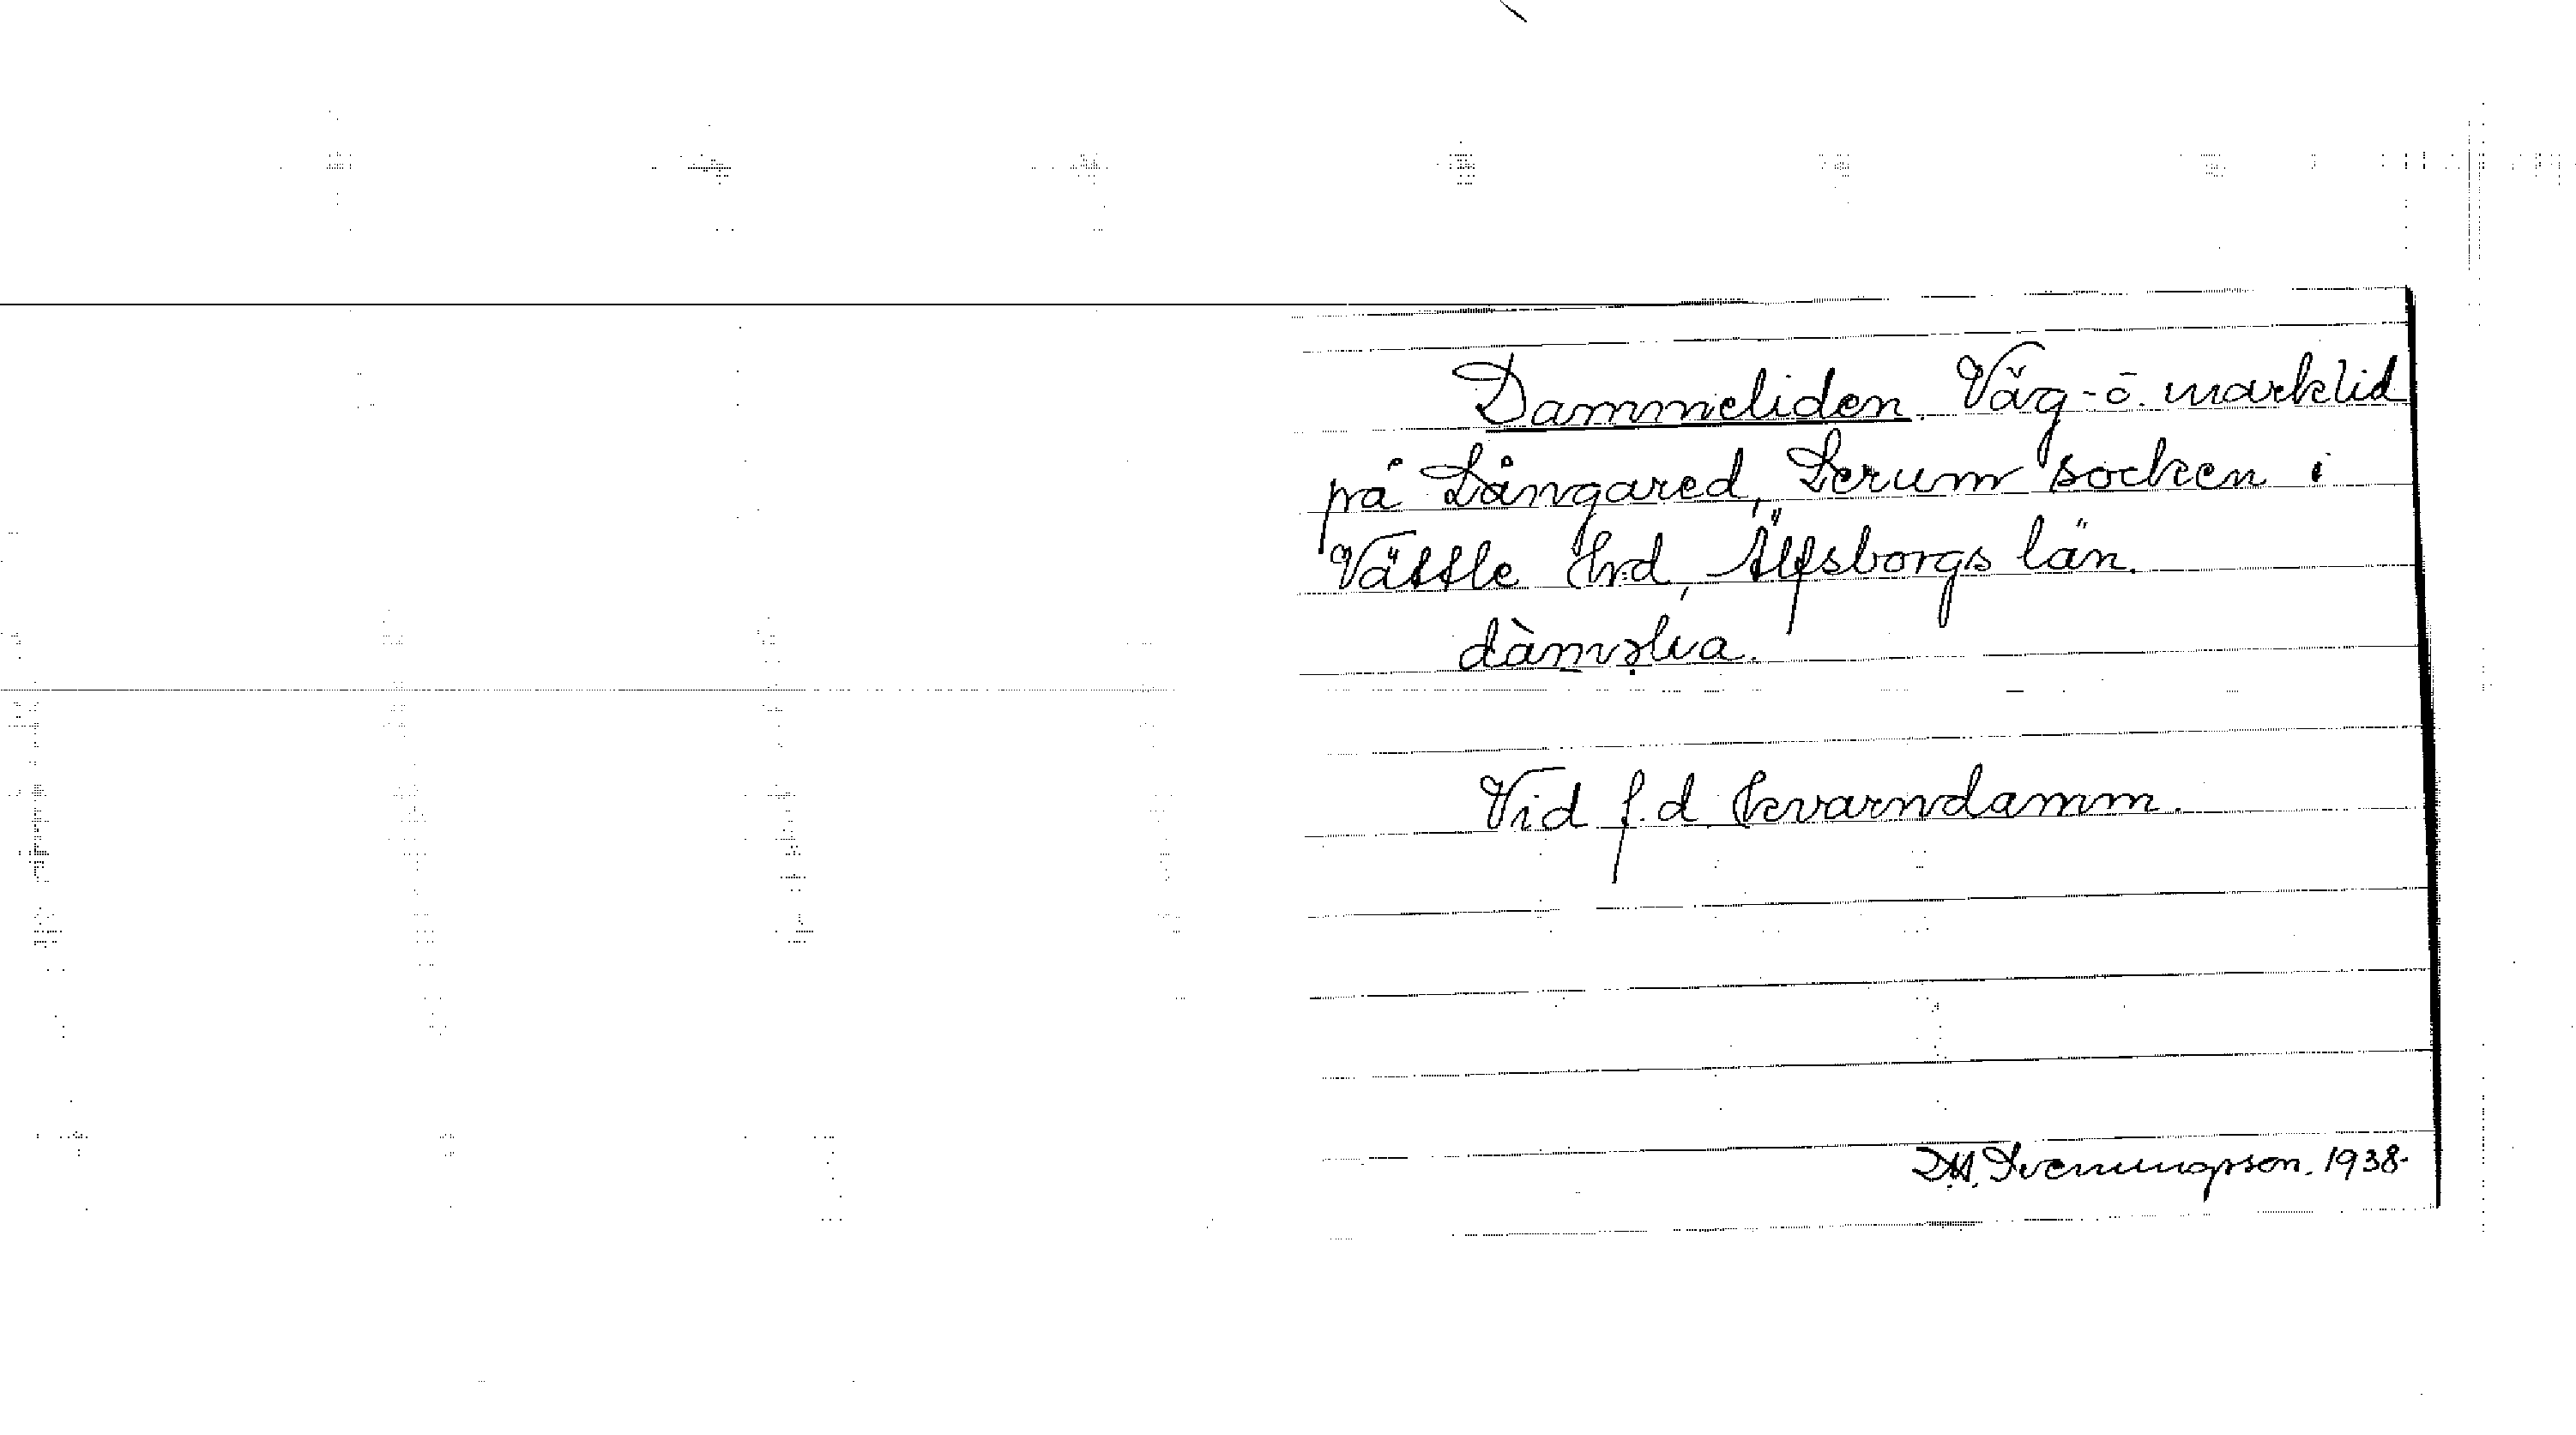 Dammeliden. Väg- o. marklid
på Långared, Lerum socken i
Vättle hrd, Älfsborgs län.
dàməlia.
Vid f.d. kvarndamm.
D.M. Svenungsson. 1938.